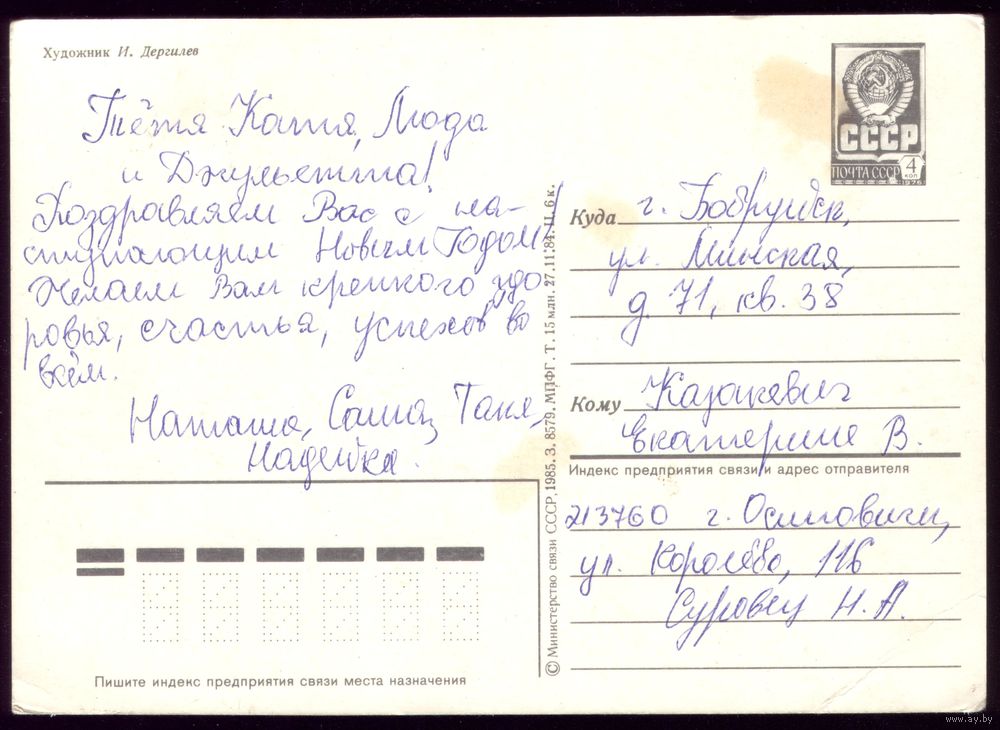 Художник И. Дергилев
Тётя Катя, Люда
и Джульетта!
Поздравляем Вас с на-
ступающим Новым Годом!
Желаем Вам крепкого здо-
ровья, счастья, успехов во
всём.
Наташа, Саша, Таня,
Надейка.
СССР
ПОЧТА СССР
4
КОП
1976
Куда г. Бобруйск,
ул. Минская,
д. 71, кв. 38
Кому Казакевич
Екатерине В.
Индекс предприятия связи и адрес отправителя
213760 г. Осиповичи,
ул. Королёва, 116
Суровец Н. А.
© Министерство связи СССР, 1985. З. 8579. МПФГ. Т. 15 млн. 27.11.84. Ц. 6 к.
Пишите индекс предприятия связи места назначения
www.ay.by